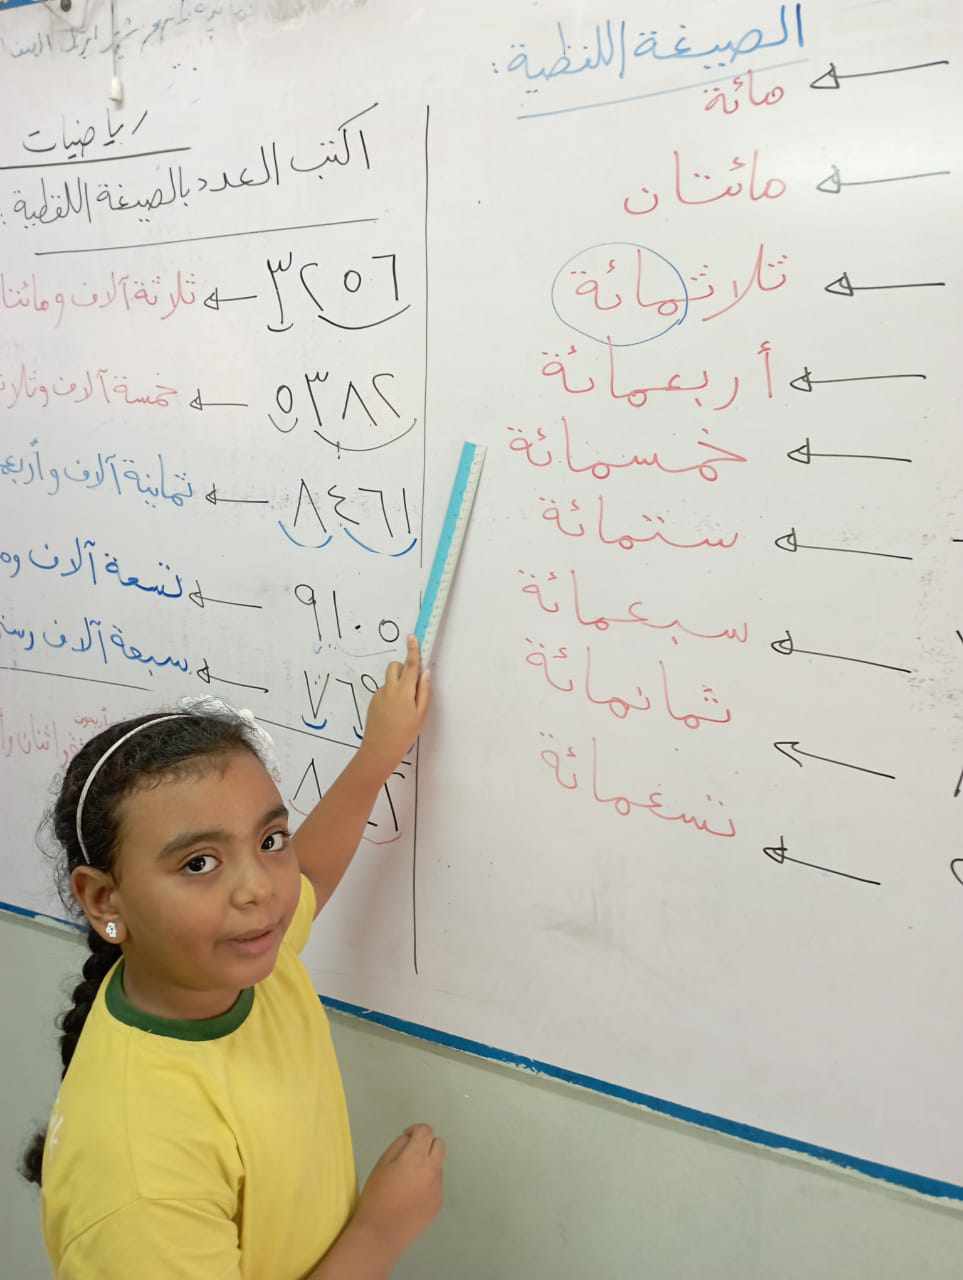 الصيغة اللفظية:
مائة
مائتان
ثلاثمائة
أربعمائة
خمسمائة
ستمائة
سبعمائة
ثمانمائة
تسعمائة
رياضيات
اكتب العدد بالصيغة اللفظية:
٣٢٥٦ ثلاثة آلاف و مائتا
٥٣٨٢ خمسة آلاف وثلاث
٨٤٦١ ثمانية آلاف و أربعم
٩١٠٥ تسعة آلاف وم
٧٦٩ سبعة آلاف وست